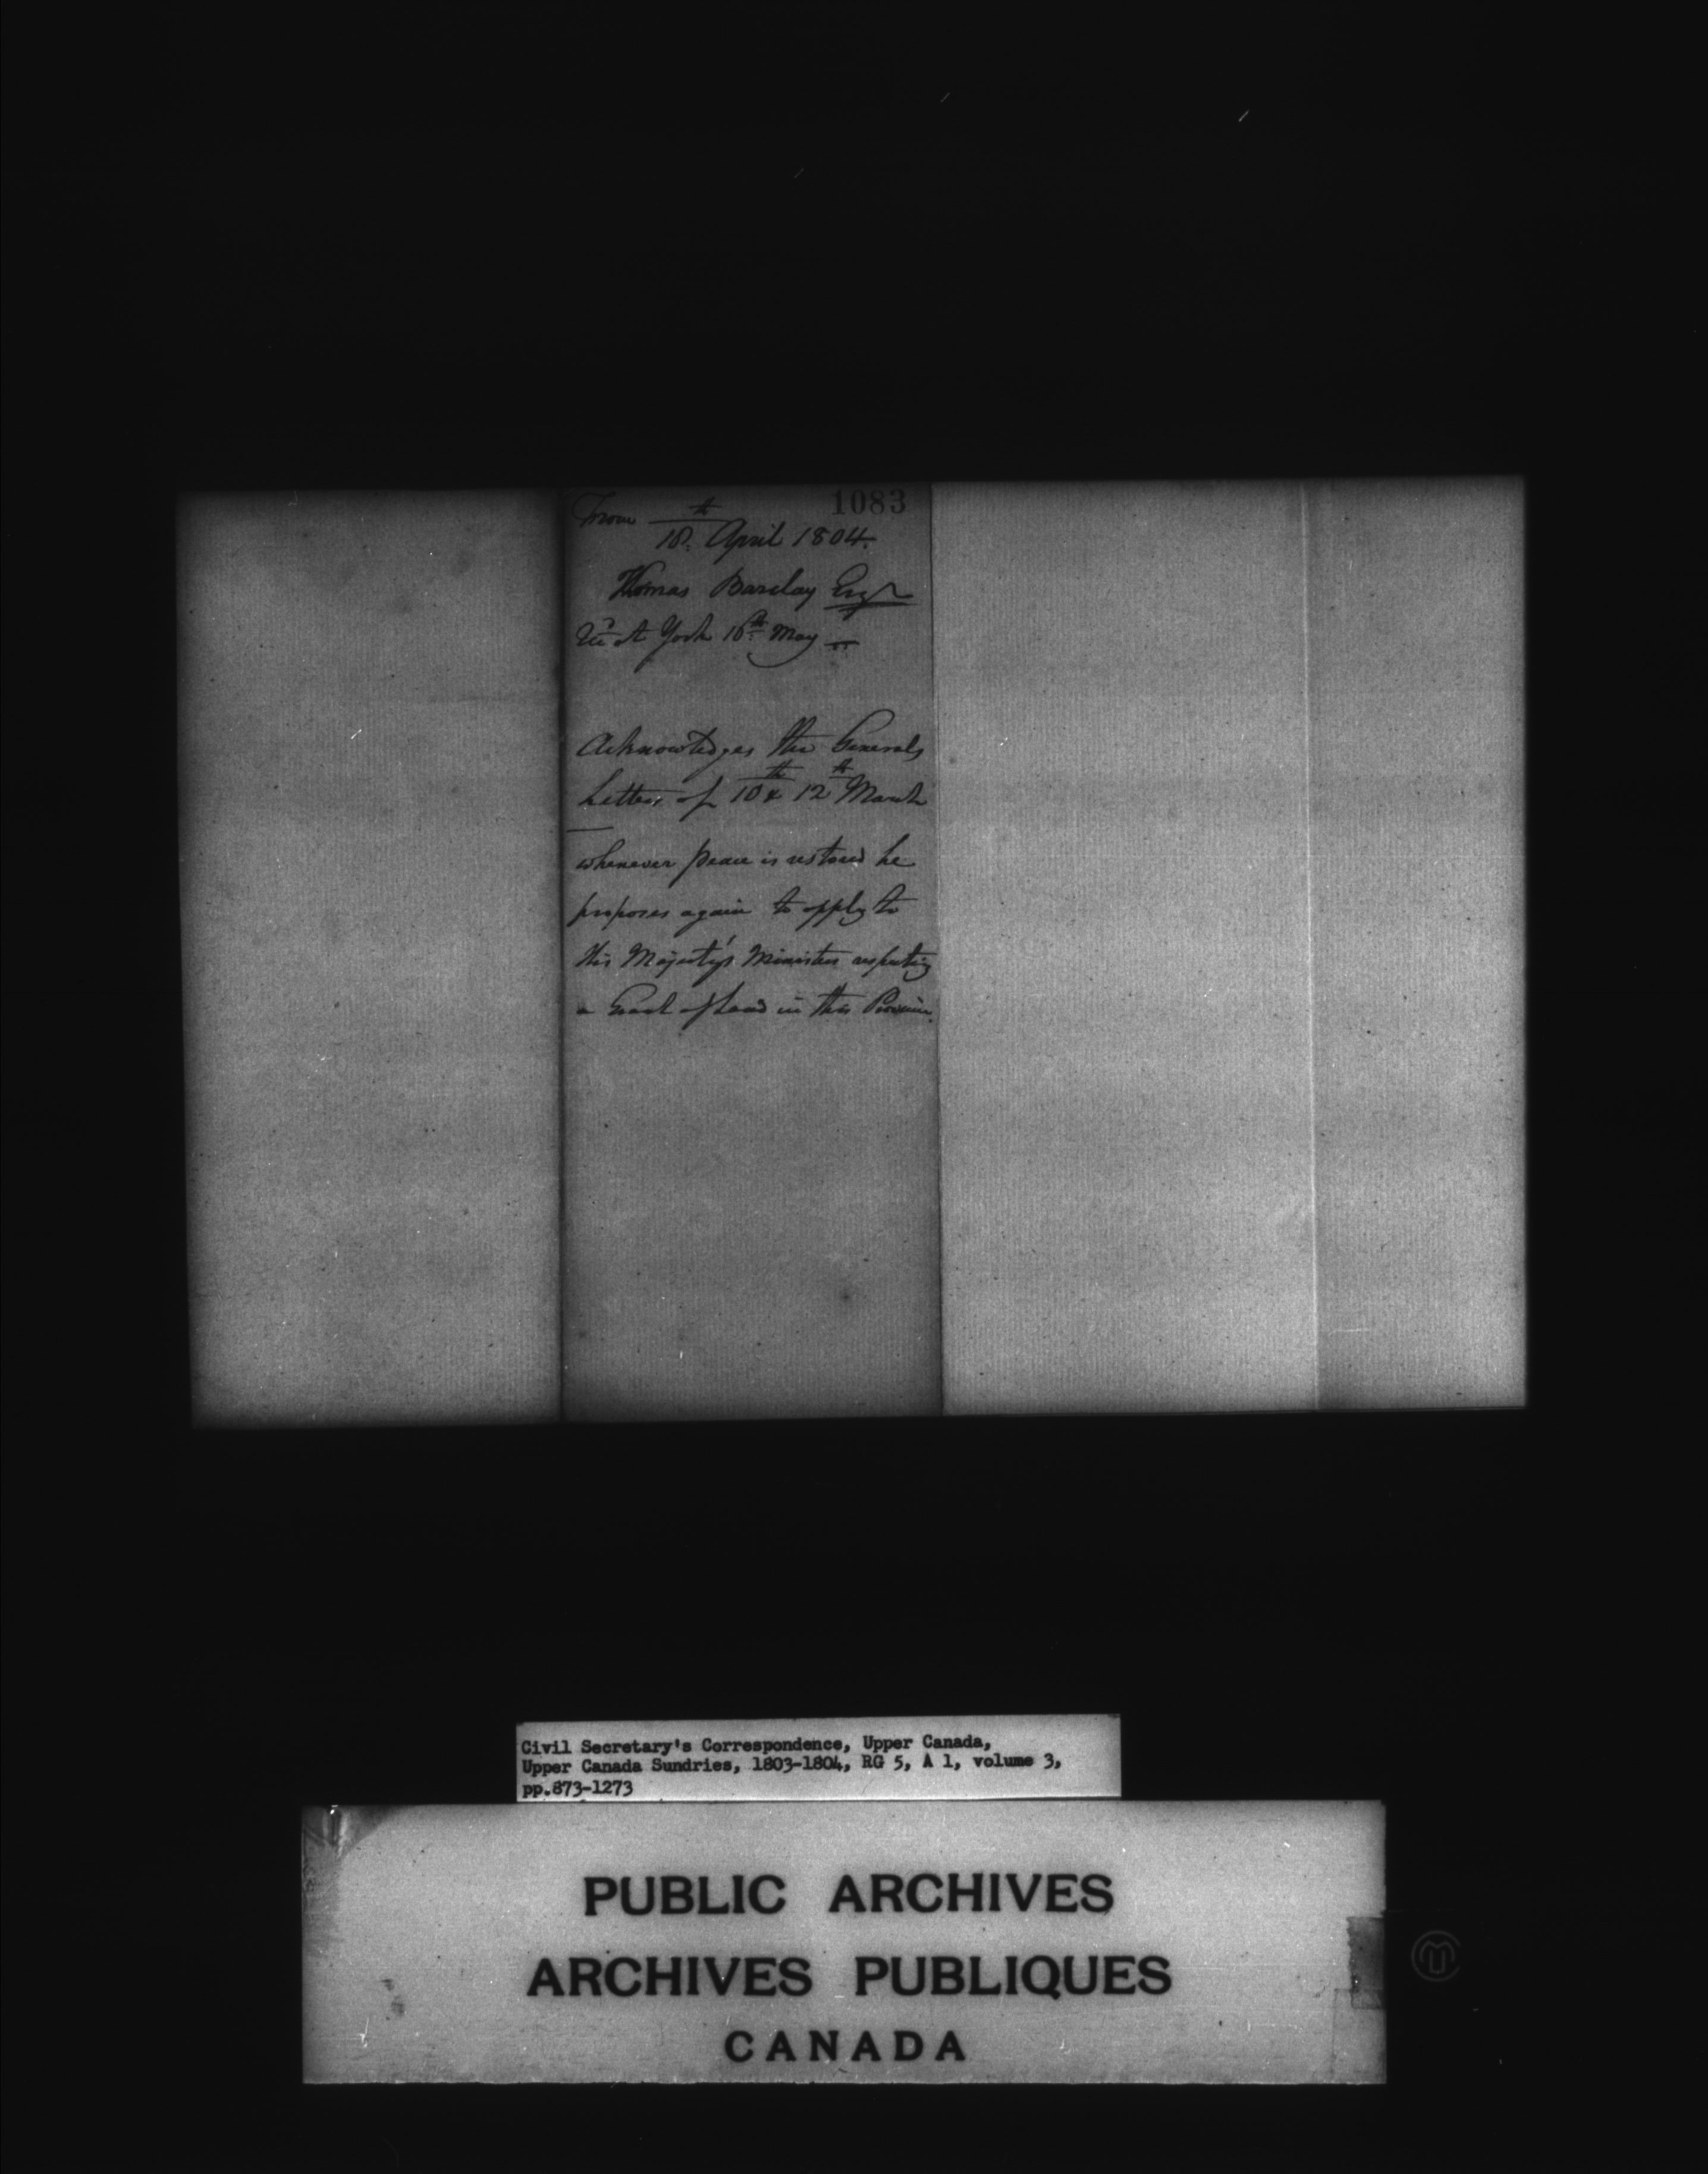 1083
From
10th April 1804.
Thomas Barclay Esqr
at York 10th May
Acknowledges the Generals
Letters of 10th & 12th March
whenever peace is restored he
proposes again to apply to
His Majesty's Ministers respecting
a Grant of Land in this Province.
Civil Secretary's Correspondence, Upper Canada,
Upper Canada Sundries, 1803-1804, RG 5, A 1, volume 3,
pp.873-1273
PUBLIC ARCHIVES
ARCHIVES PUBLIQUES
CANADA